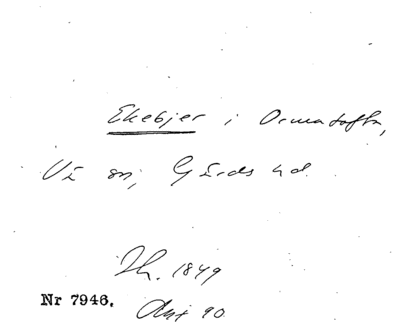 Ekebjer i Ormatofta,
Vä sn, Gärds hd.
Jb. 1849
Nr 7946.
Akt 90